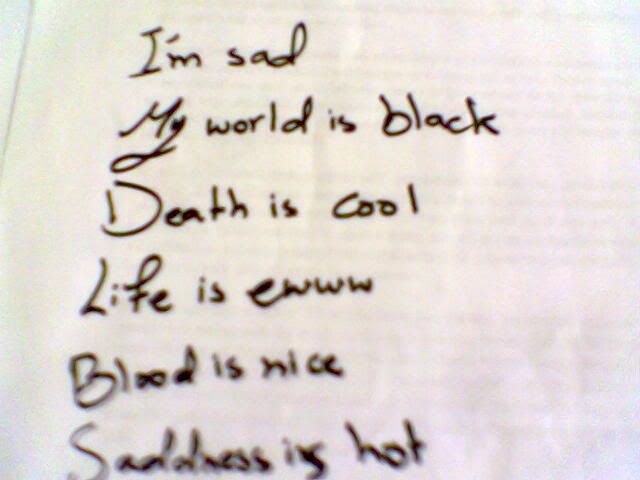 I'm sad
My world is black
Death is cool
Life is ewww
Blood is nice
Saddness is hot